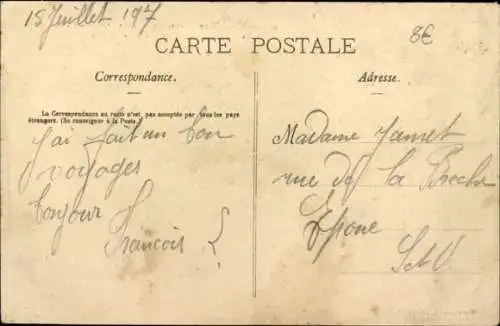 15 Juillet 197
8€
CARTE POSTALE
Correspondance.
Adresse.
La Correspondance au recto n'est pas acceptée par tous les pays
étrangers. (Se renseigner à la Poste.)
J'ai fait un bon
voyages
bonjour
François
Madame Jamet
rue de la Breche
Epone
S et O.